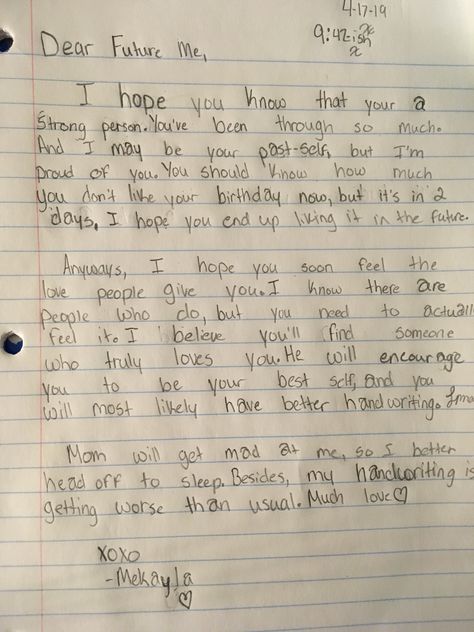 4-17-19
9:42ish
Dear Future Me,
I hope you know that your a
strong person. You've been through so much.
And I may be your past-self, but I'm
proud of you. You should know how much
you don't like your birthday now, but it's in 2
days. I hope you end up liking it in the future.
Anyways, I hope you soon feel the
love people give you. I know there are
people who do, but you need to actuall
feel it. I believe you'll find someone
who truly loves you. He will encourage
you to be your best self, and you
will most likely have better handwriting. lma
Mom will get mad at me, so I better
head off to sleep. Besides, my handwriting is
getting worse than usual. Much love♡
XOXO
-Mekayla
♡